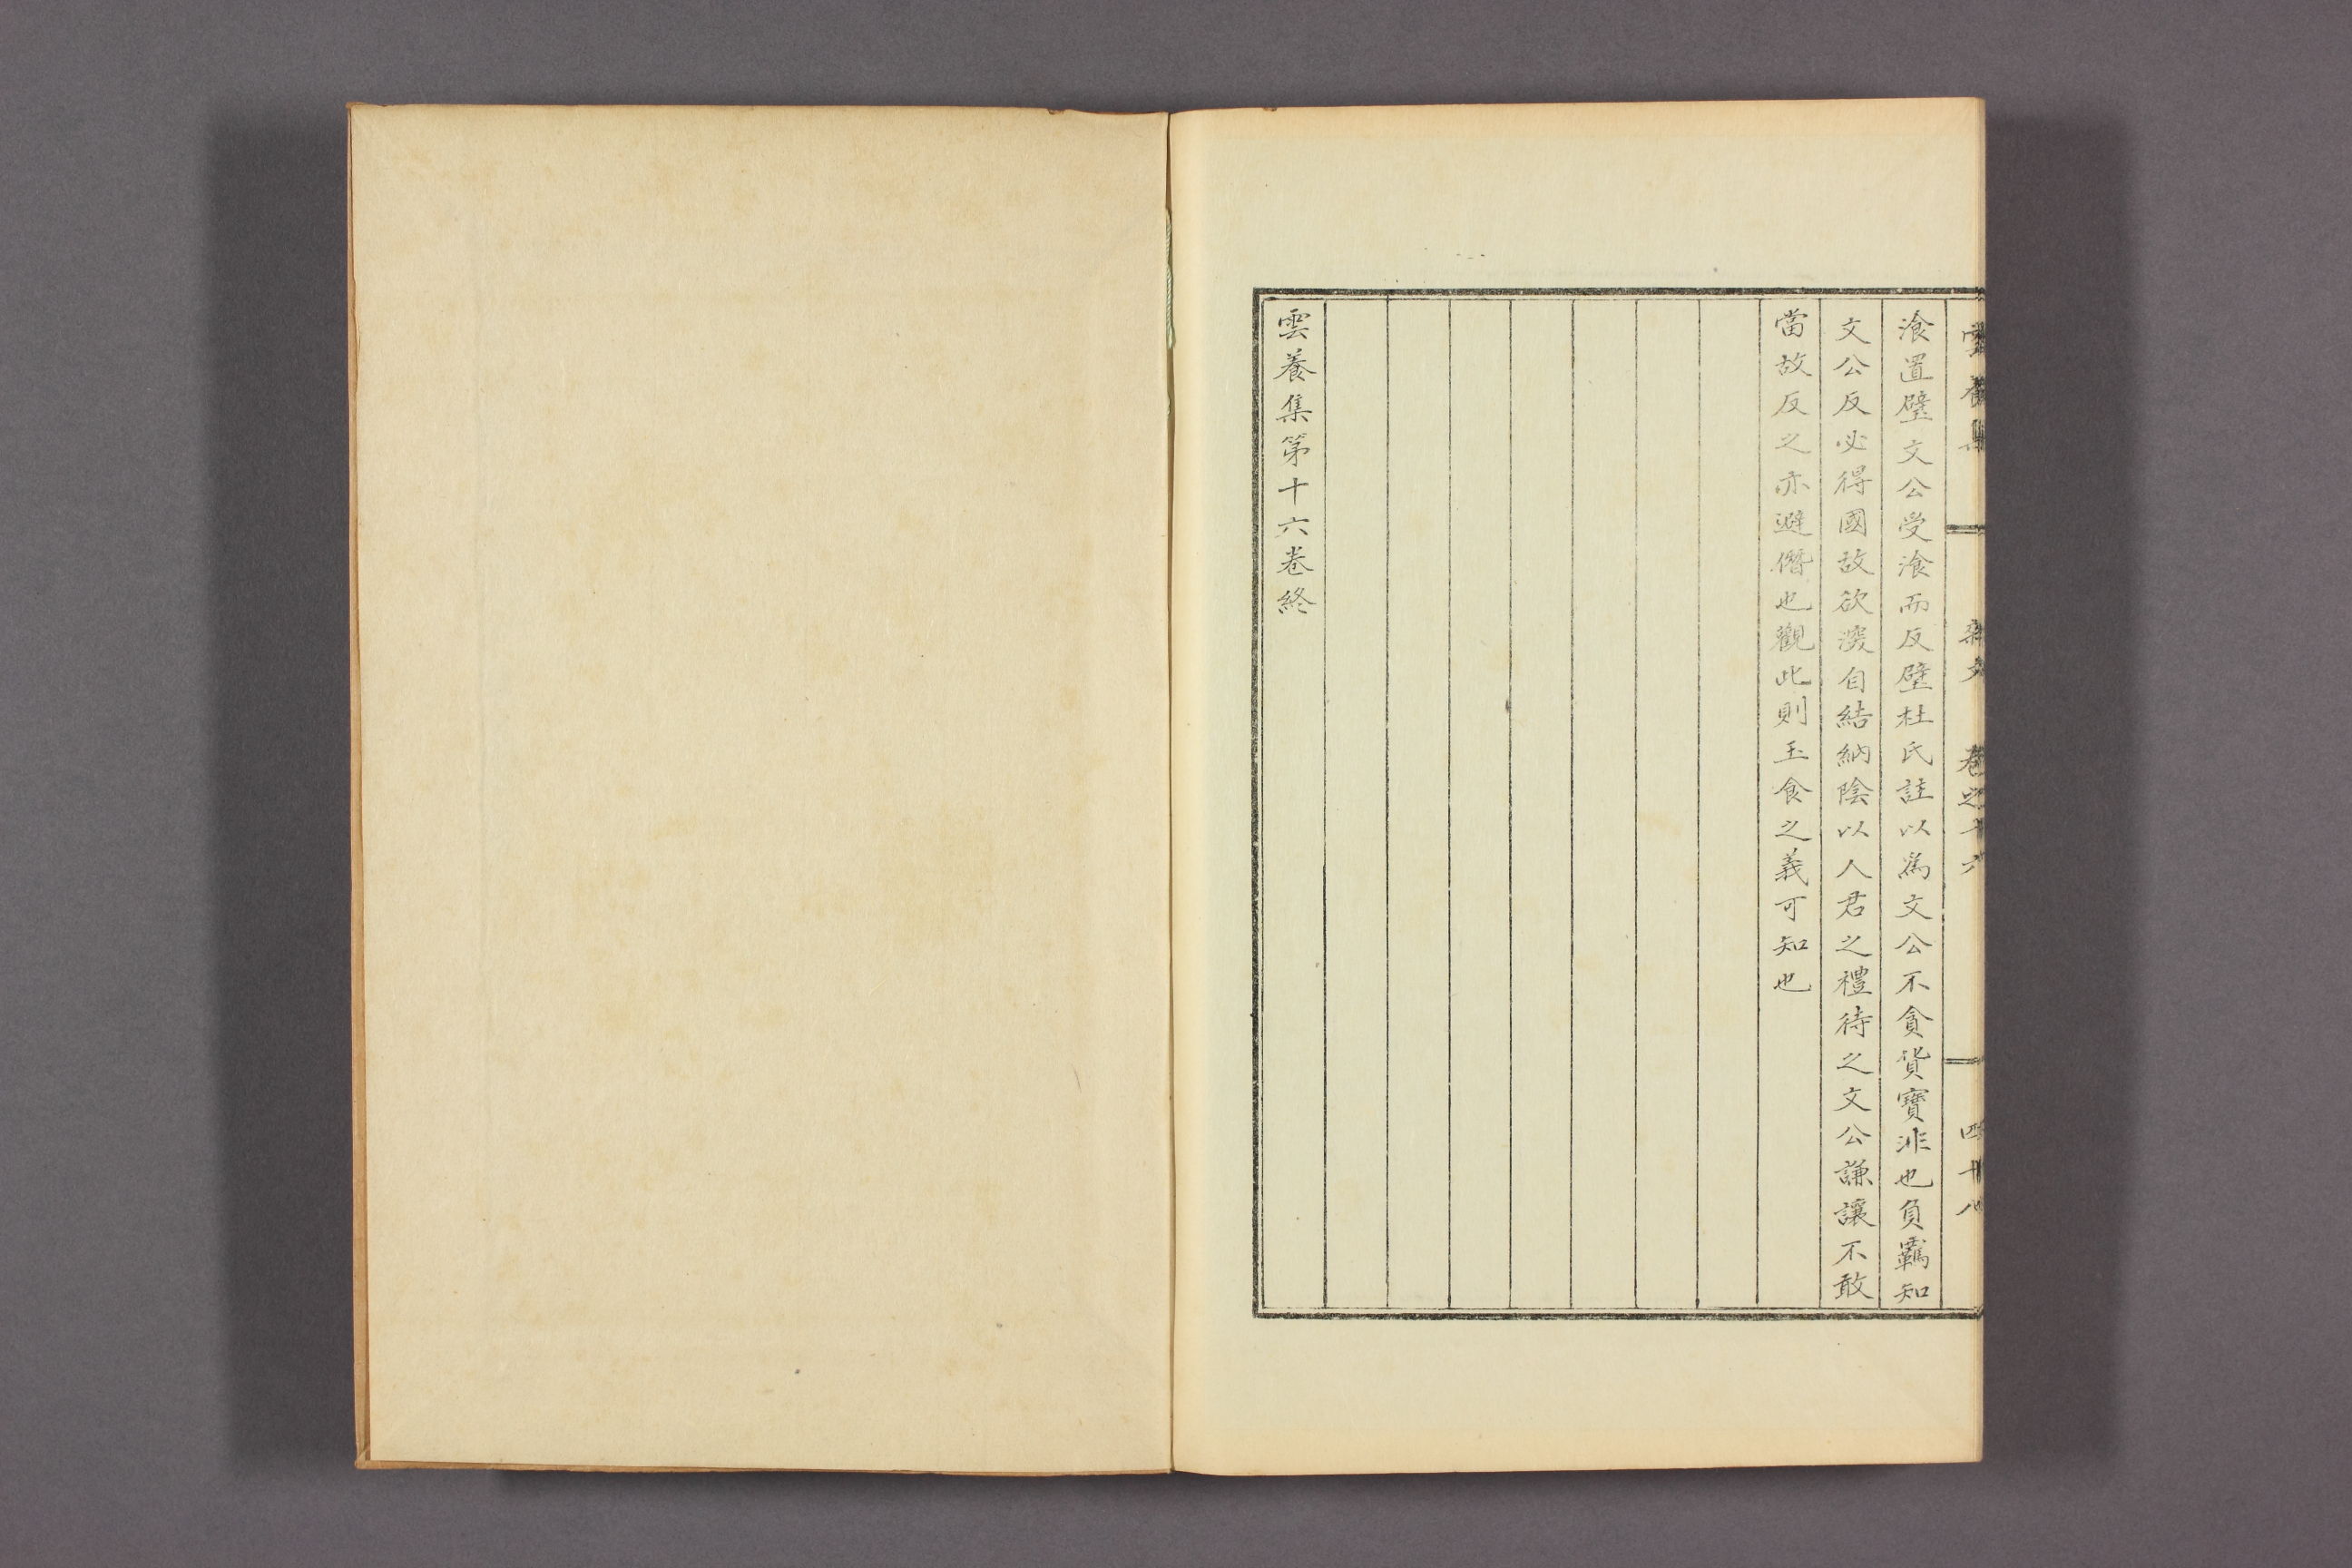 雲養集 雜文 卷之十六 四十八
飡置璧文公受飡而反璧杜氏註以爲文公不貪貨寶非也負羈知
文公反必得國故欲深自結納陰以人君之禮待之文公謙讓不敢
當故反之亦避僭也觀此則玉食之義可知也
雲養集第十六卷終